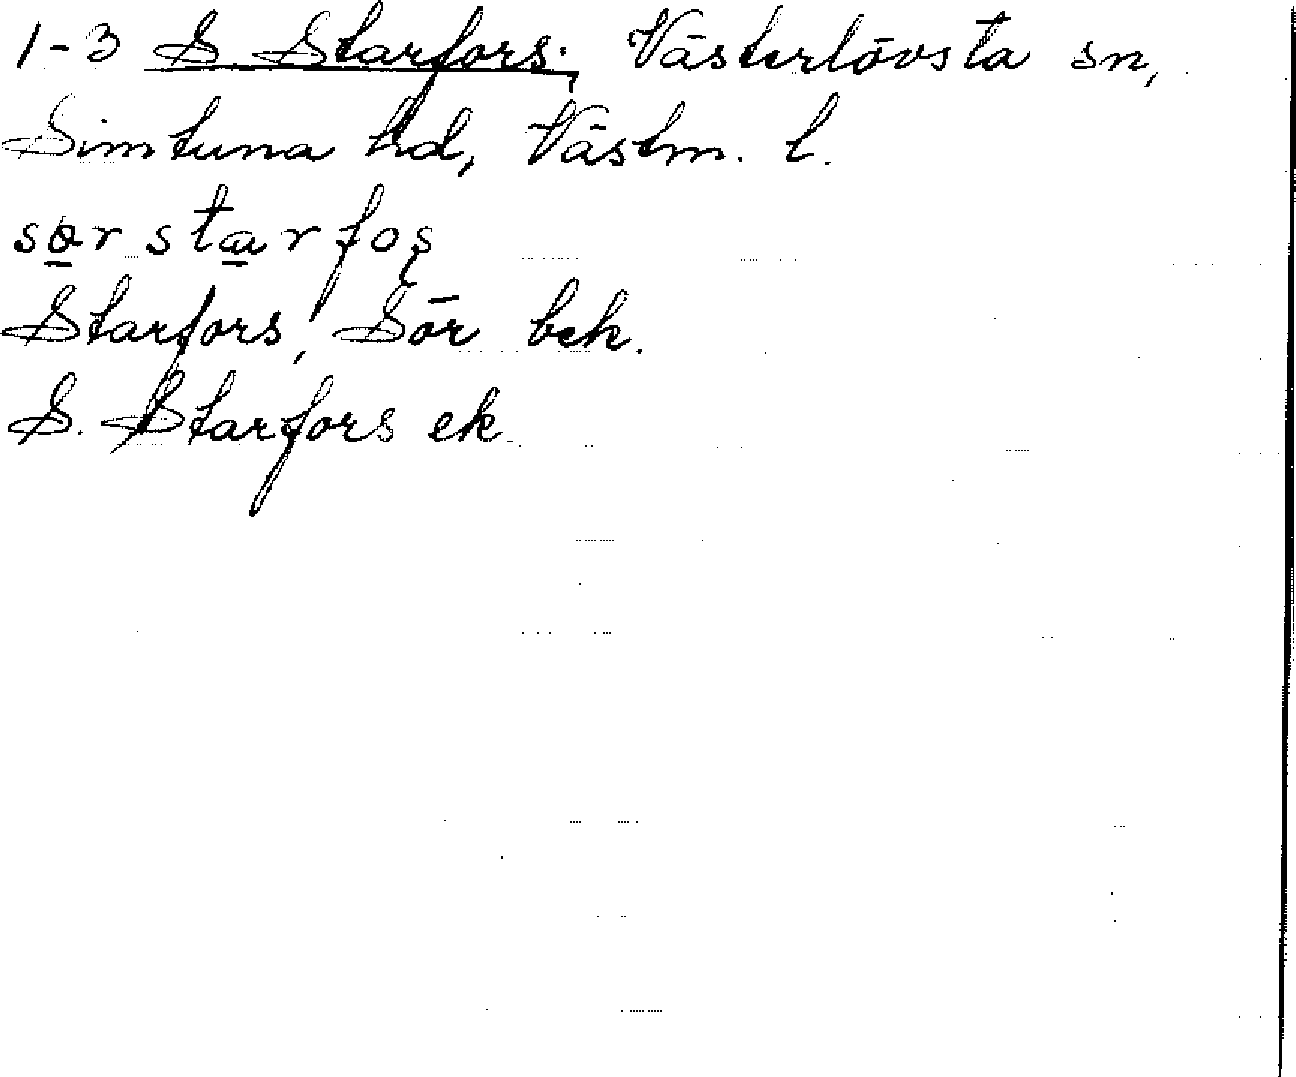 1-3 S. Starfors, Västerlövsta sn,
Simtuna hd, Västm. l.
sør starfoş
Starfors, Sör bek.
S. Starfors ek.